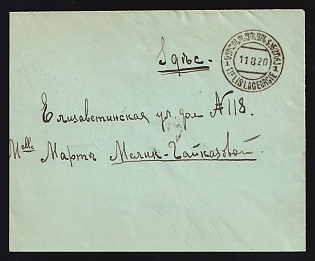 Здѣсь.
TIFLIS LA GEORGIE
11 8 20
Елизаветинская ул. дом № 118.
Melle Мартѣ Мелик-Гайказовой.